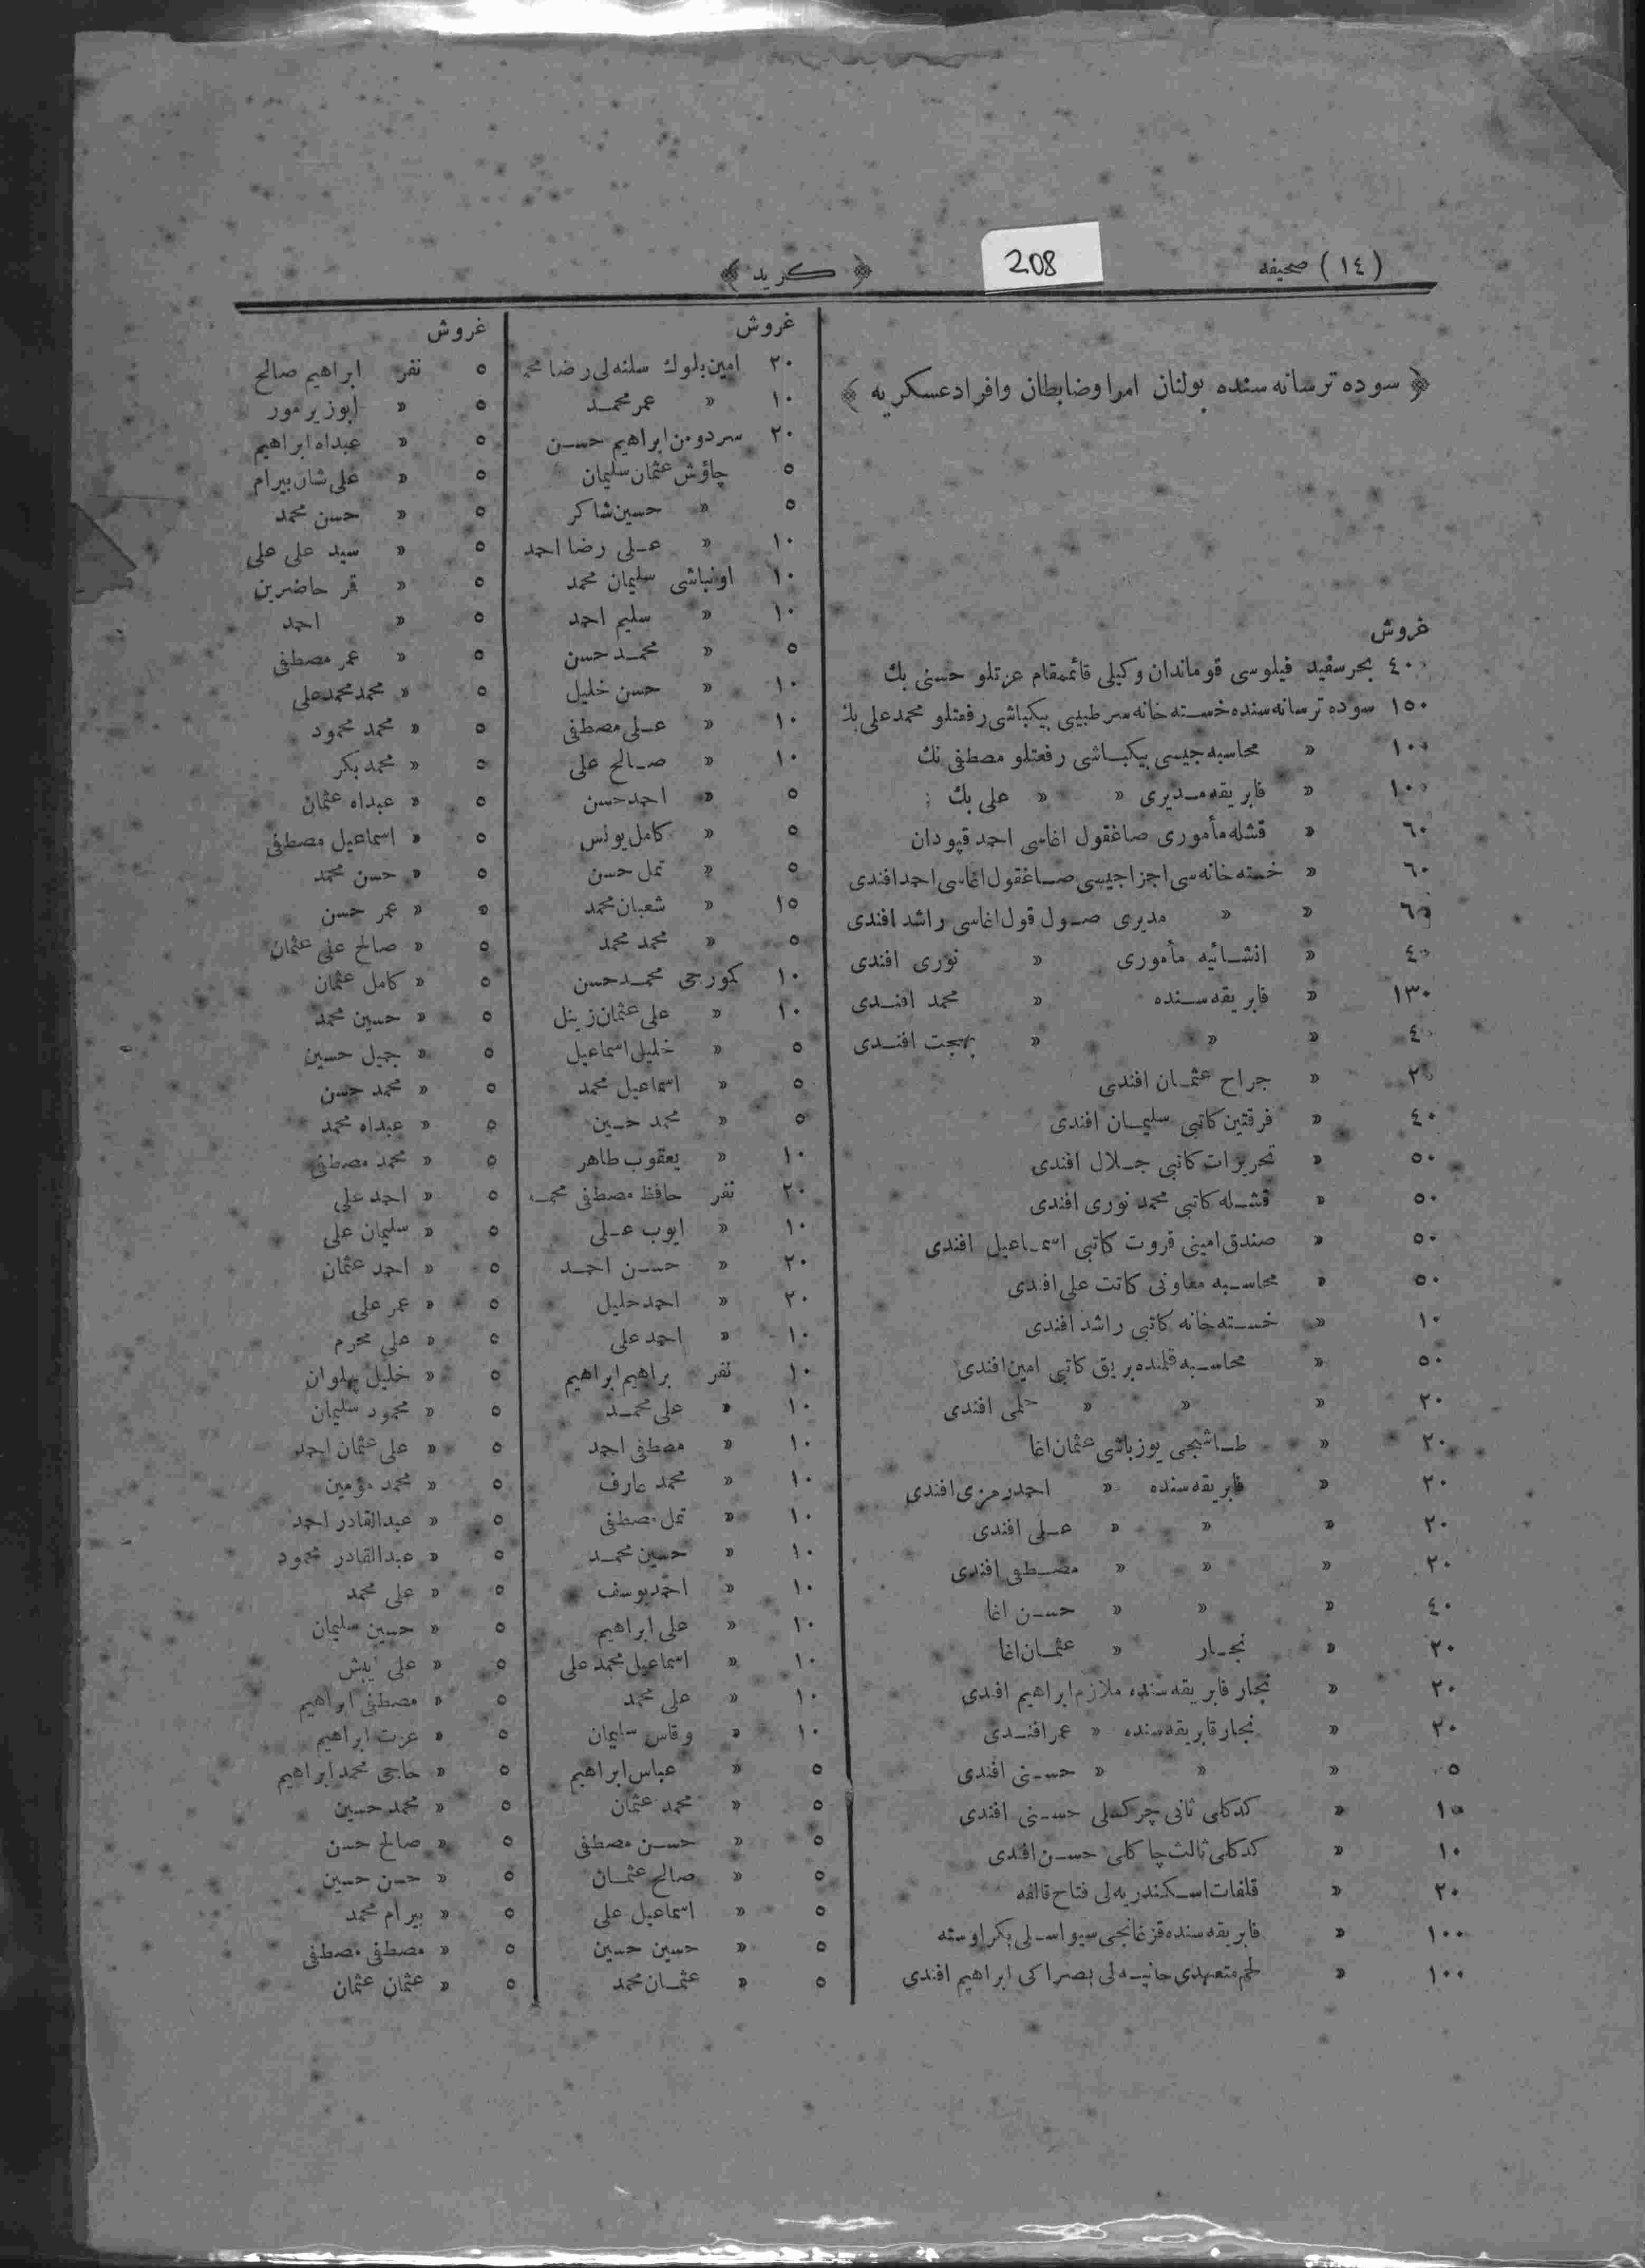 صحيفه (١٤)
208
﴿ كريد ﴾
﴿ سوده ترسانه سنده بولنان امرا وضابطان وافراد عسكريه ﴾
غروش
٤٠٠ بحر سفيد فيلوسى قوماندان وكيلى قائممقام عزتلو حسنى بك
١٥٠ سوده ترسانه سنده خسته خانه سرطبيبى بيكباشى رفعتلو محمد على بك
١٠٠ » محاسبه جيسى بيكباشى رفعتلو مصطفى بك
١٠٠ » فابريقه مديرى » » على بك
٦٠ » قشله مأمورى صاغقول اغاسى احمد قپودان
٦٠ » خسته خانه سى اجزاجيسى صاغقول اغاسى احمد افندى
٦٠ » » مديرى صول قول اغاسى راشد افندى
٤٠ » انشائيه مأمورى » نورى افندى
١٣٠ » فابريقه سنده » محمد افندى
٤٠ » » » بهجت افندى
٢٠ » جراح عثمان افندى
٤٠ » فرقتين كاتبى سليمان افندى
٥٠ » تحريرات كاتبى جلال افندى
٥٠ » قشله كاتبى محمد نورى افندى
٥٠ » صندق امينى قروت كاتبى اسماعيل افندى
٥٠ » محاسبه معاونى كاتب على افندى
١٠ » خسته خانه كاتبى راشد افندى
٥٠ » محاسبه قلمنده بريق كاتبى امين افندى
٢٠ » » » حلمى افندى
٢٠ » طاشجى يوزباشى عثمان اغا
٢٠ » فابريقه سنده » احمد رمزى افندى
٢٠ » » » على افندى
٢٠ » » » مصطفى افندى
٤٠ » » » حسن اغا
٢٠ » نجار » عثمان اغا
٢٠ » نجار فابريقه سنده ملازم ابراهيم افندى
٢٠ » نجار فابريقه سنده » عمر افندى
٥ » » » حسنى افندى
١٠ » كدكلى ثانى چركسلى حسنى افندى
١٠ » كدكلى ثالث حسن افندى
٢٠ » قلفات اسكندريه لى فتاح قالفه
١٠٠ » فابريقه سنده قزغانجى سيواسلى بكر اوسته
١٠٠ » لحم متعهدى حانيه لى بصراكى ابراهيم افندى
غروش
٢٠ امين بلوك سلنه لى رضا محمد
١٠ » عمر محمد
٢٠ سردومن ابراهيم حسن
٥ چاؤش عثمان سليمان
٥ » حسين شاكر
١٠ » على رضا احمد
١٠ اونباشى سليمان محمد
١٠ » سليم احمد
٥ » محمد حسن
١٠ » حسن خليل
١٠ » على مصطفى
١٠ » صالح على
٥ » احمد حسن
٥ » كامل يونس
٥ » تمل حسن
١٥ » شعبان محمد
٥ » محمد محمد
١٠ كمورجى محمد حسن
١٠ » على عثمان زينل
٥ » خليل اسماعيل
٥ » اسماعيل محمد
٥ » محمد حسين
١٠ » يعقوب طاهر
٢٠ نفر حافظ مصطفى محمد
١٠ » ايوب على
٢٠ » حسن احمد
٢٠ » احمد خليل
١٠ » احمد على
١٠ نفر براهيم ابراهيم
١٠ » على محمد
١٠ » مصطفى احمد
١٠ » محمد عارف
١٠ » تمل مصطفى
١٠ » حسين محمد
١٠ » احمد يوسف
١٠ » على ابراهيم
١٠ » اسماعيل محمد على
١٠ » على محمد
١٠ » وقاس سليمان
٥ » عباس ابراهيم
٥ » محمد عثمان
٥ » حسن مصطفى
٥ » صالح عثمان
٥ » اسماعيل على
٥ » حسين حسين
٥ » عثمان محمد
غروش
٥ نفر ابراهيم صالح
٥ » ابوزير مور
٥ » عبداه ابراهيم
٥ » على شان بيرام
٥ » حسن محمد
٥ » سيد على على
٥ » حاضرين
٥ » احمد
٥ » عمر مصطفى
٥ » محمد محمد على
٥ » محمد محمود
٥ » محمد بكر
٥ » عبداه عثمان
٥ » اسماعيل مصطفى
٥ » حسن محمد
٥ » عمر حسن
٥ » صالح على عثمان
٥ » كامل عثمان
٥ » حسين محمد
٥ » جميل حسين
٥ » محمد حسن
٥ » عبداه محمد
٥ » محمد مصطفى
٥ » احمد على
٥ » سليمان على
٥ » احمد عثمان
٥ » عمر على
٥ » على محرم
٥ » خليل پهلوان
٥ » محمود سليمان
٥ » على عثمان احمد
٥ » محمد مؤمين
٥ » عبدالقادر احمد
٥ » عبدالقادر محمود
٥ » على محمد
٥ » حسين سليمان
٥ » على
٥ » مصطفى ابراهيم
٥ » عزت ابراهيم
٥ » حاجى محمد ابراهيم
٥ » محمد حسين
٥ » صالح حسن
٥ » حسن حسين
٥ » بيرام محمد
٥ » مصطفى مصطفى
٥ » عثمان عثمان